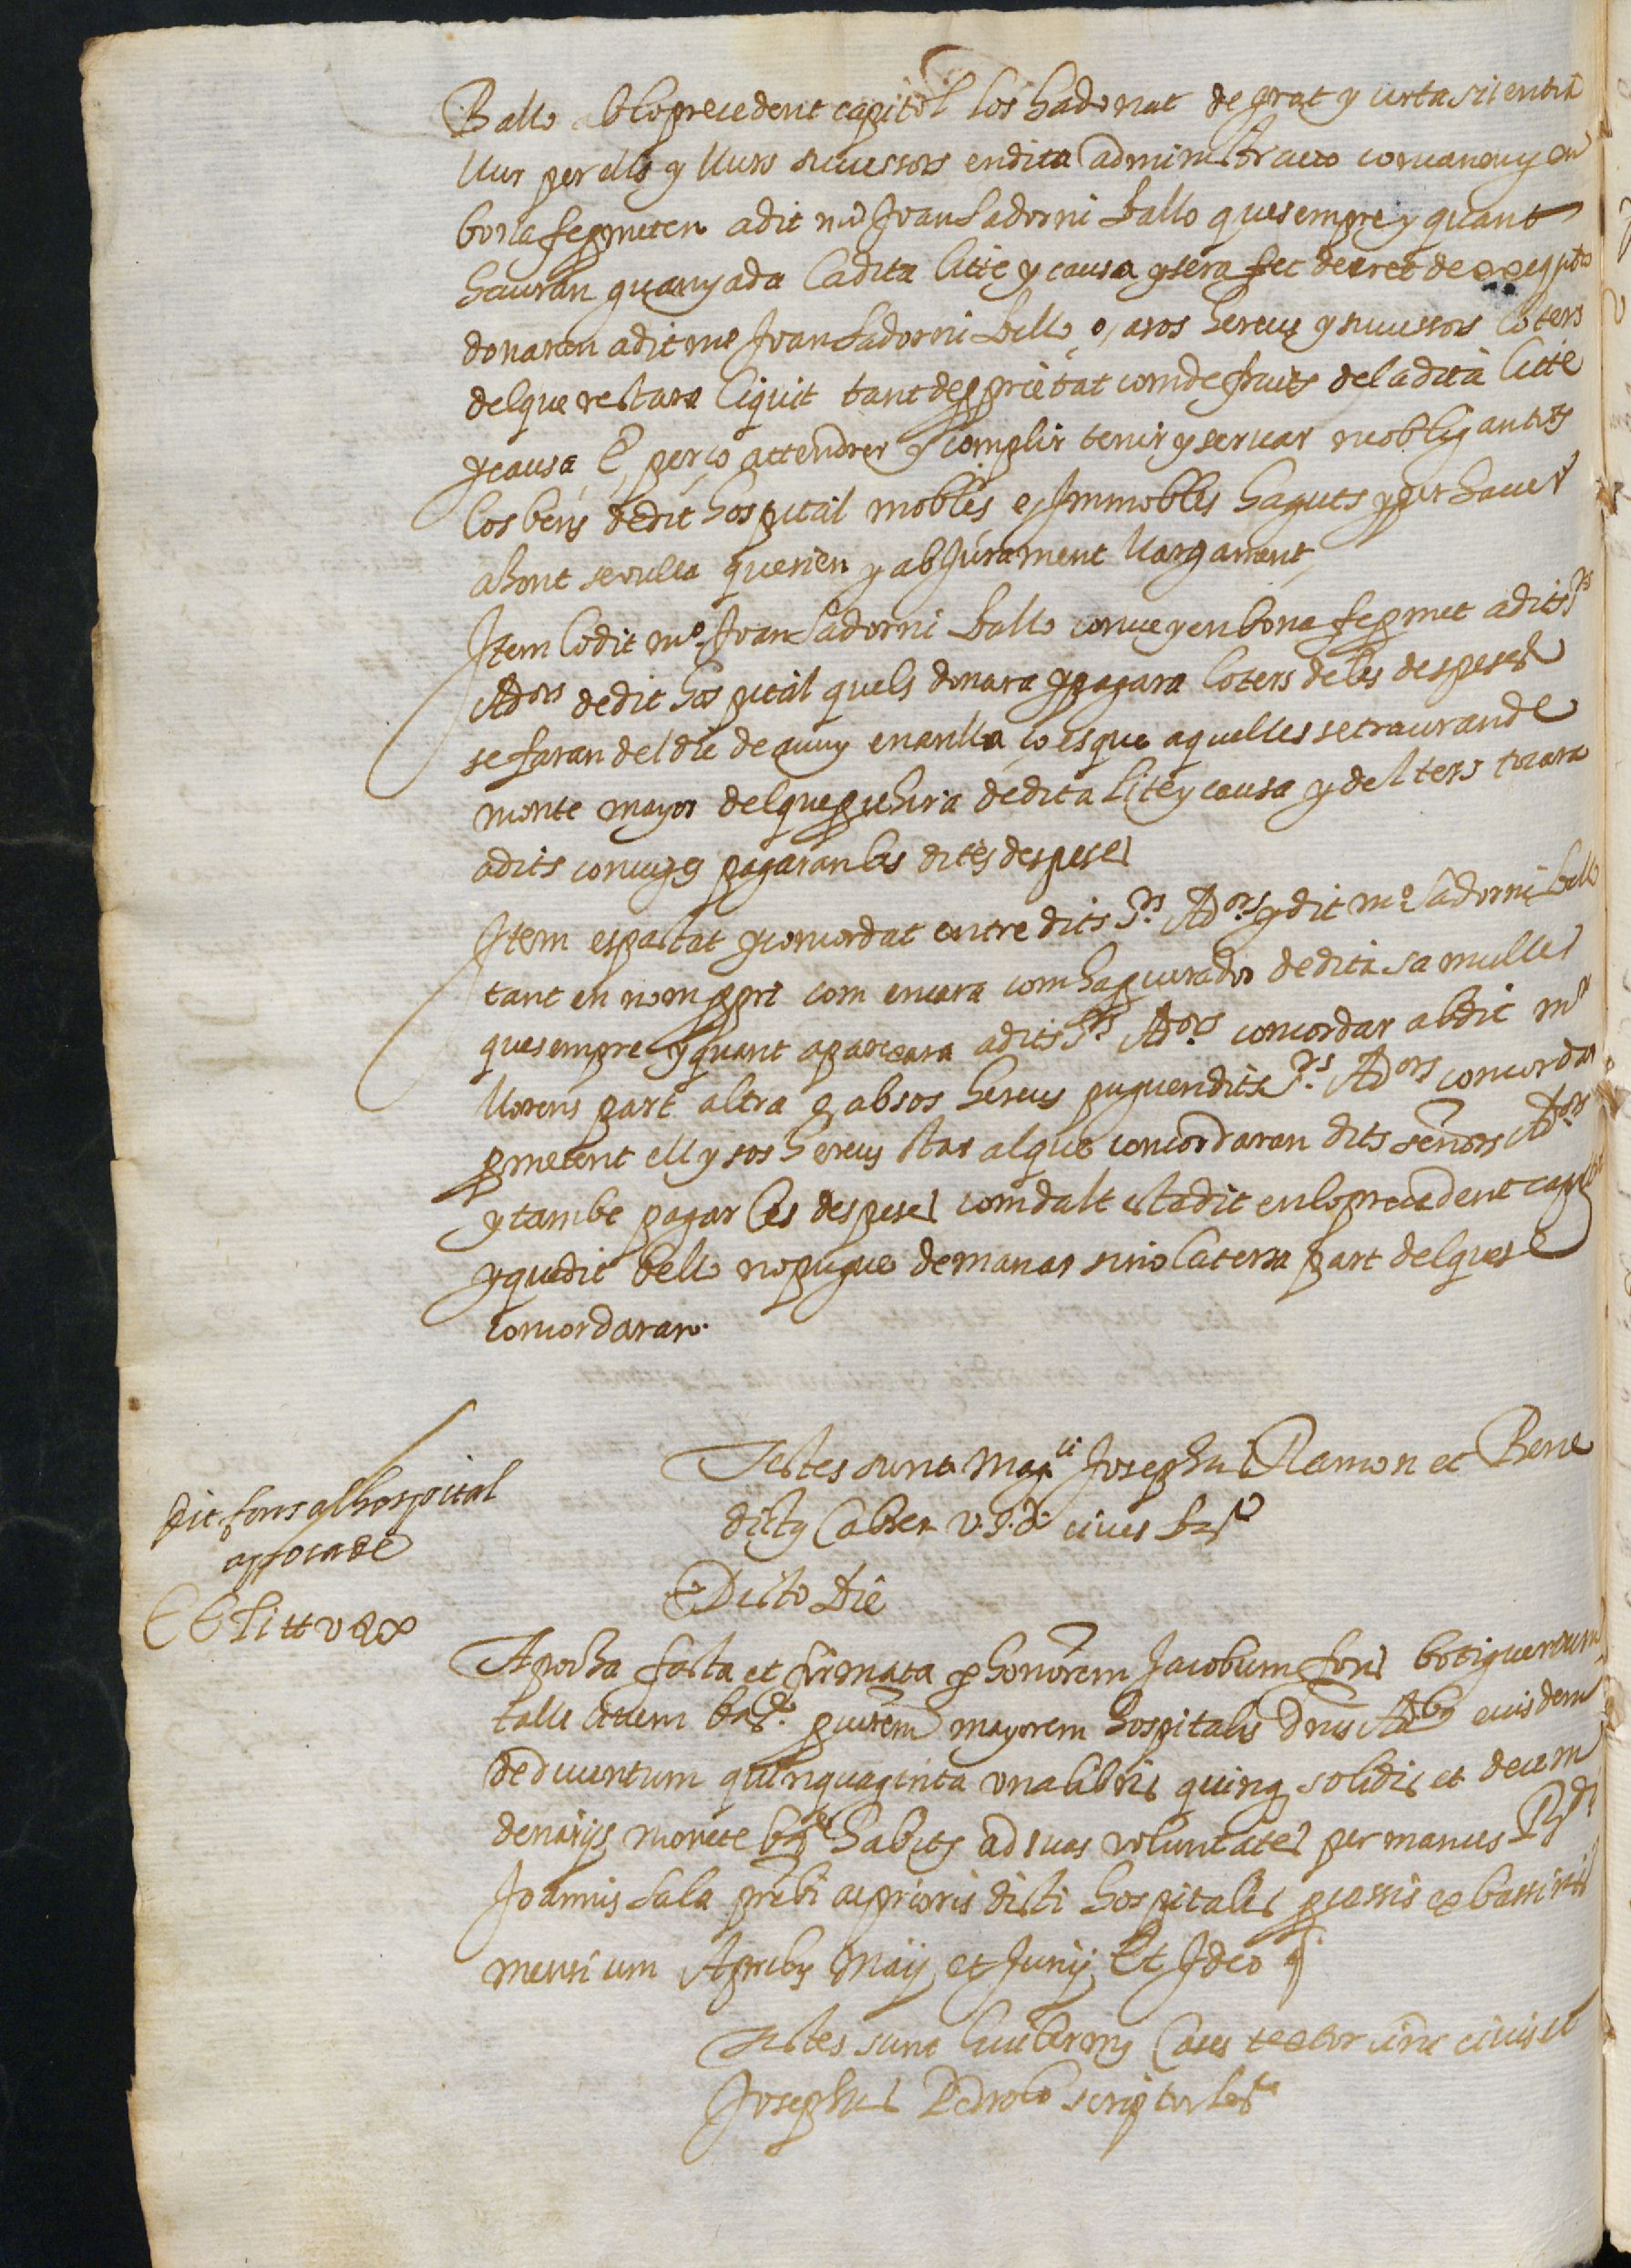 Ballo ab lo precedent capitol los ha donat de grat y certa scientia
llur per ells y llurs successors en dita administracio convenen y en
bona fe prometen a dit mº Joan Sadorni Ballo que sempre y quant
hauran guanyada la dita litte y causa y sera fet decret de
donaran a dit mº Joan Sadorni Ballo o, a sos hereus y successors lo ters
del que restara liquit tant de pprietat com de fruits de la dita litte
y causa E, perço attendrer y complir tenir y servar ne obligan tots
los bens de dit hospital mobles e, Immobles haguts y per haver
ahont se vulla que sien y ab Jurament llargament,
Item lo dit mº Joan Sadorni Ballo conve y en bona fe pmet a dits Sʳˢ
Adoʳˢ de dit hospital quels donara y pagara lo ters de les despeses
se faran del die de avuy enanlla ço es que aquelles se trauran de
monte mayor del que pvehira de dita lite y causa y del ters tocara
a dits conjuges pagaran les dites despeses
Item es pactat y concordat entre dits Sʳˢ Adoʳˢ y dit mº Sadorni Ballo
tant en nom ppri com encara com ha pcurador de dita sa muller
que sempre y quant apareixera a dits Sʳˢ Adoʳˢ concordar ab dit mº
Llorens part altra o, ab sos hereus puguen dits Sʳˢ Adoʳˢ concordar
pmetent ell y sos hereus star al que concordaran dits señors Adoʳˢ
y tambe pagar les despeses com dalt esta dit en lo precedent capitol
y que dit Ballo no pugue demanar sino la tersa part del ques
concordaran.
Testes sunt Magᶜⁱ Josephus Ramon et Bene
dictus Cabrer v. J. d. cives Barᵉ
Dicto Die
Dit fons al hospital
appocade
CCLi ll v s x
Apocha facta et firmata p honorem Jacobum fons botiguerium
talle civem Barᵉ. pcuserem mayorem hospitalis dnis Adbus eiusdem
de ducentum quinquaginta una libris quinq solidis et decem
denarijs monete barᵉ habitis ad suas voluntates per manus Rdi
Joannis Sala prebi ac prioris dicti hospitalis pcessis ex bassinis
mensium Aprilis Maij et Junij Et Ideo &
Testes sunt Guillermus Cases textor lini civis et
Josephus Pedrolo scriptor Barᵉ